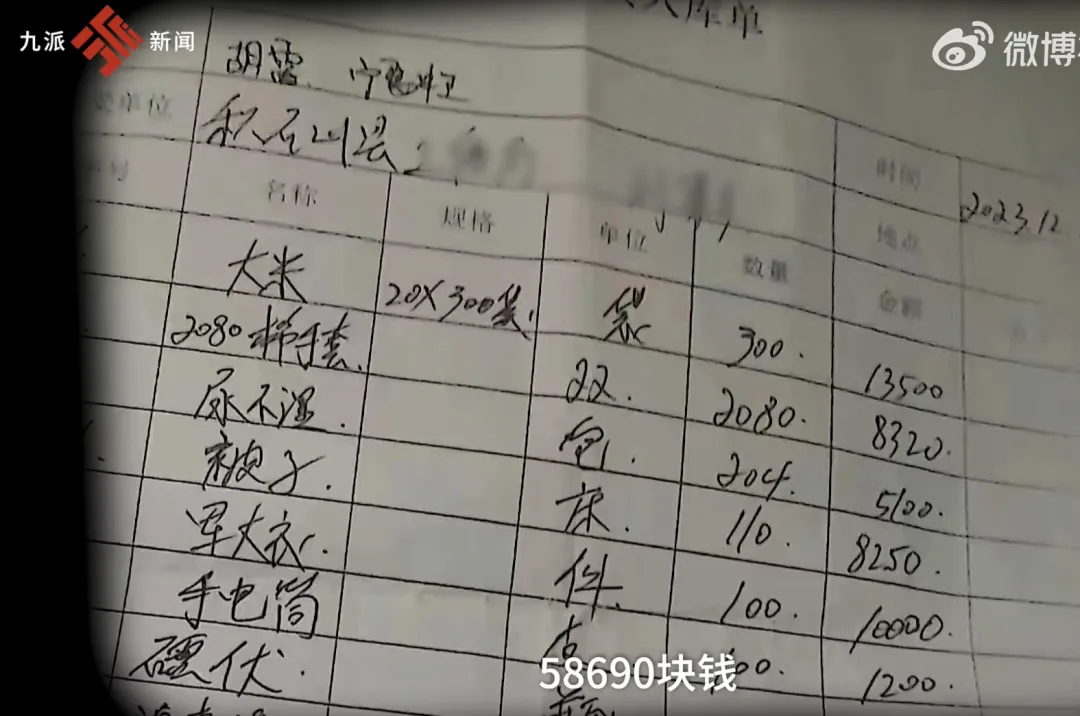 九派 新闻
微博
库单
胡霞、宁
单位 积石山县
时间 2023.12.
名称 规格 单位 数量 地点
金额
大米 20X300袋. 袋 300. 13500
2080 手套. 22. 2080. 8320.
尿不湿. 包. 204. 5100.
被子. 床. 110. 8250.
军大衣. 件. 100. 10000.
手电筒 00. 1200.
58690块钱